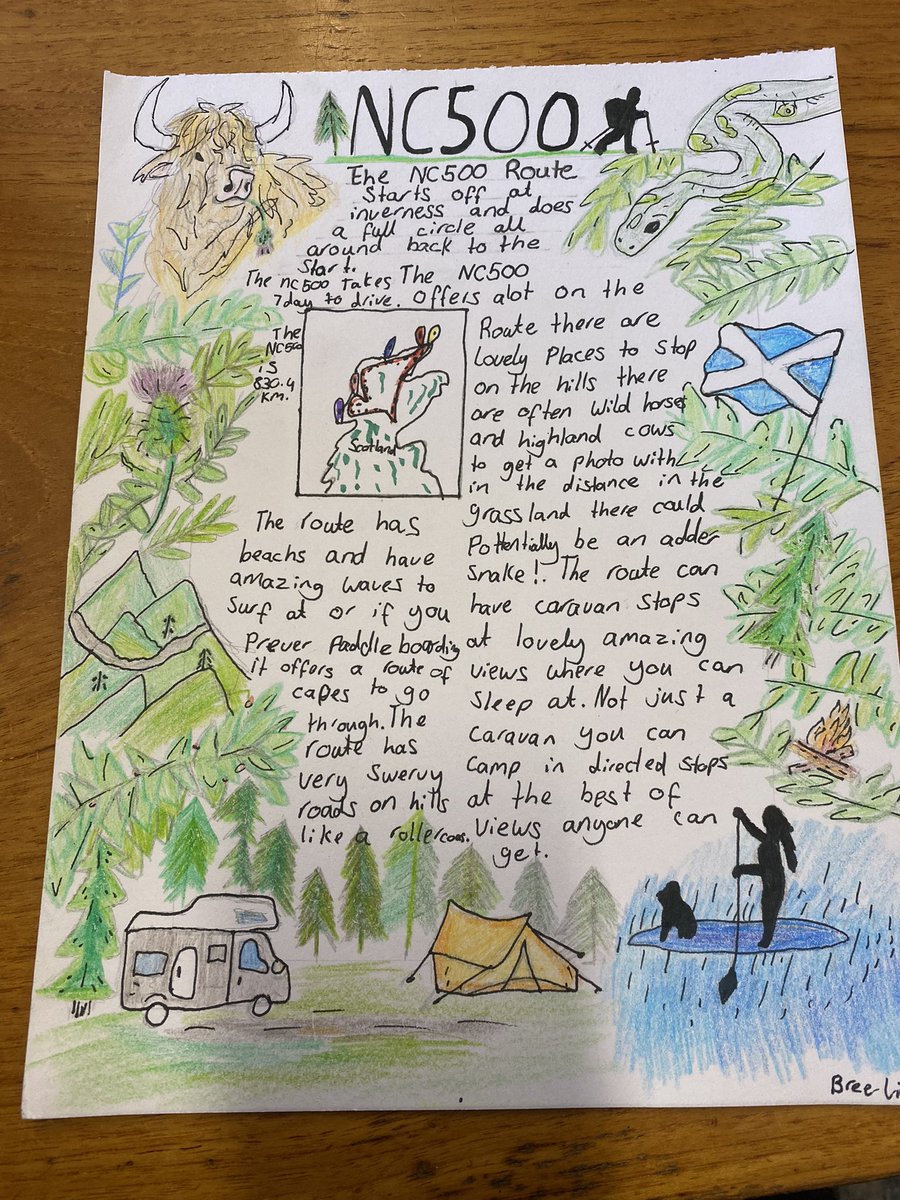 NC500
The NC500 Route
Starts off at
inverness and does
a full circle all
around back to the
Start.
The nc500 takes
7day to drive.
The
NC500
is
830.4
km.
Scotland
The NC500
Offers alot on the
Route there are
lovely Places to Stop
on the hills there
are often wild horses
and highland cows
to get a photo with
in the distance in the
grassland there could
Pottentially be an adder
Snake!. The route can
have caravan stops
at lovely amazing
views where you can
Sleep at. Not just a
caravan you can
camp in directed stops
at the best of
views anyone can
get.
The route has
beachs and have
amazing waves to
Surf at or if you
Prever Paddle boarding
it offers a route of
capes to go
through. The
route has
very Swervy
roads on hills
like a rollercoas.